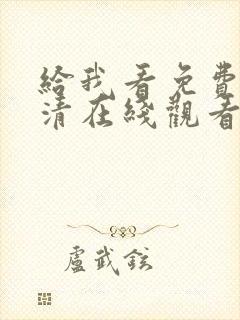 給我看免費
清在綫觀看
盧武鉉